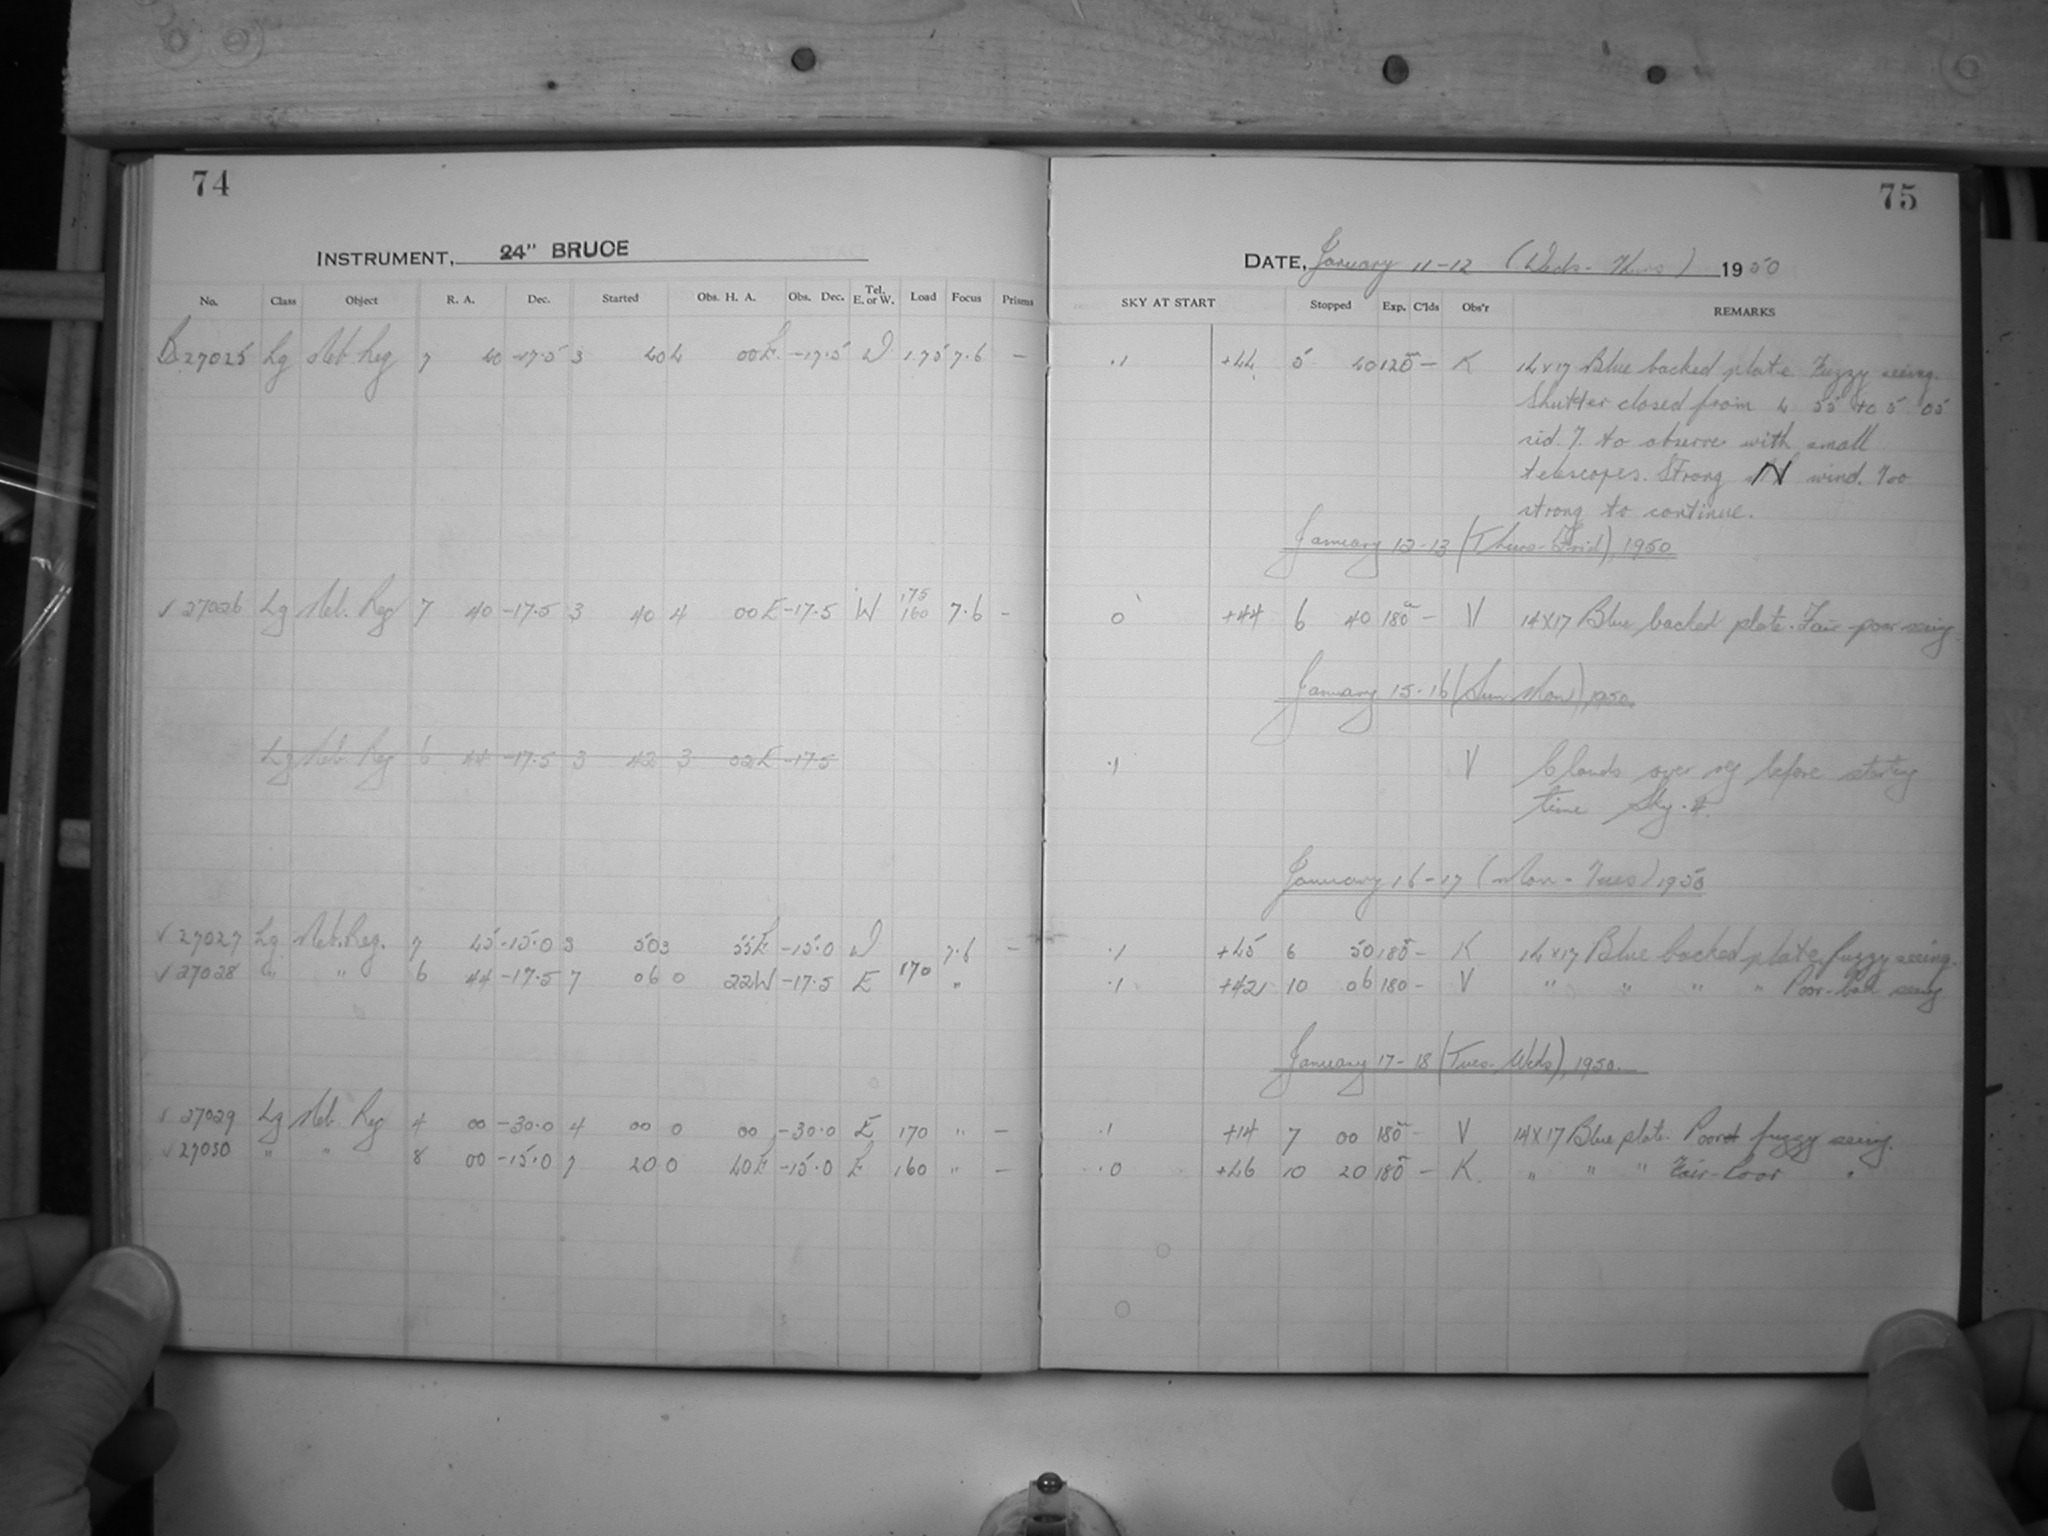 74
INSTRUMENT, 24" BRUCE
No. Class Object R. A. Dec. Started Obs. H. A. Obs. Dec. Tel. E. or W. Load Focus Prisms
B 27025 Lg Neb. Reg 7 40 -17.5 3 40 4 00 E. -17.5 W 1.75 7.6 —
✓ 27026 Lg Neb. Reg 7 40 -17.5 3 40 4 00 E -17.5 W 175 160 7.6 —
Lg Neb. Reg 6 44 -17.5 3 42 3 02 E -17.5
✓ 27027 Lg Neb. Reg. 7 45 -15.0 3 50 3 55 E -15.0 W 7.6 —
✓ 27028 " " 6 44 -17.5 7 06 0 22 W -17.5 E 170 "
✓ 27029 Lg Neb. Reg 4 00 -30.0 4 00 0 00 -30.0 E 170 " —
✓ 27030 " " 8 00 -15.0 7 20 0 40 E -15.0 E 160 " —
75
DATE, January 11-12 (Weds - Thurs) 1950
SKY AT START Stopped Exp. C'lds Obs'r REMARKS
.1 +44 5 40 120m — K 14x17 Blue backed plate. Fuzzy seeing.
Shutter closed from 4 55 to 5 05
sid. T. to observe with small
telescopes. Strong N wind. Too
strong to continue.
January 12-13 (Thurs-Frid), 1950
0 +44 6 40 180m — V 14X17 Blue backed plate. Fair-poor seeing
January 15-16 (Sun Mon), 1950.
.1 V Clouds over reg before starting
time Sky .4.
January 16-17 (Mon - Tues) 1950
.1 +45 6 50 180m — K 14x17 Blue backed plate, fuzzy seeing.
.1 +42 10 06 180 — V " " " " Poor-bad seeing
January 17-18 (Tues-Weds), 1950.
.1 +14 7 00 180m — V 14X17 Blue plate. Poor fuzzy seeing.
.0 +46 10 20 180m — K. " " " Fair-Poor "